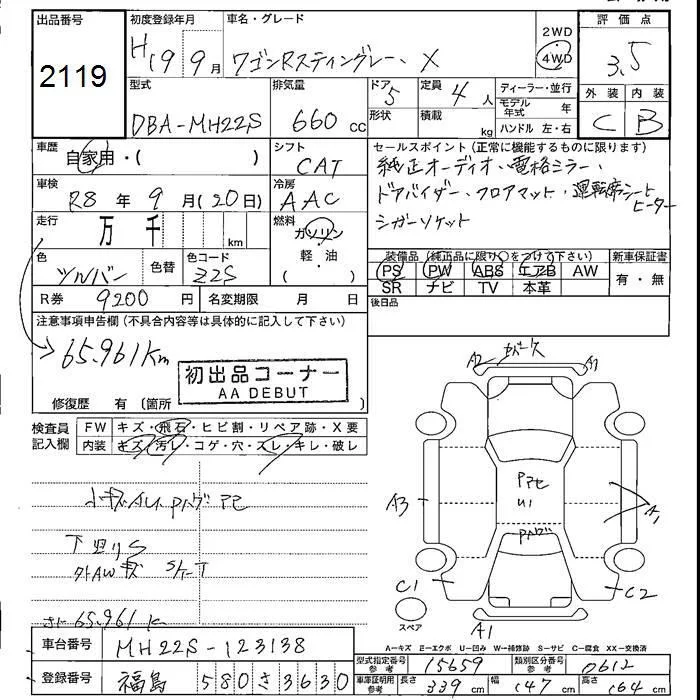 出品番号 初度登録年月 車名・グレード 2WD 評価点
2119 H19 9月 ワゴンRスティングレー、X 4WD 3.5
型式 排気量 ドア 5 定員 4人 ディーラー・並行 外装 内装
DBA-MH22S 660 cc 形状 積載 kg モデル年式 年 C B
ハンドル 左・右
車歴 自家用・( ) シフト CAT セールスポイント(正常に機能するものに限ります)
車検 R8年 9月(20日) 冷房 AAC 純正オーディオ、電格ミラー、
走行 万 千 km 燃料 ガソリン ドアバイザー、フロアマット、運転席シートヒーター
軽・油 シガーソケット
色 色替 色コード ( ) 装備品(純正品に限り○をつけて下さい) 新車保証書
Z2S PS PW ABS エアB AW 有・無
R券 9200円 名変期限 月 日 SR ナビ TV 本革
注意事項申告欄(不具合内容等は具体的に記入して下さい) 後日品
65.961km
初出品コーナー
AA DEBUT
修復歴 有(箇所
検査員記入欄 FW キズ・飛石・ヒビ割・リペア跡・X要
内装 キズ・汚レ・コゲ・穴・スレ・キレ・破レ
A2 A1
A3 A1
U1
下回りS
外AWキズ
65.961k
C1 C2
スペア A1
A=キズ E=エクボ U=凹み W=補修跡 S=サビ C=腐食 XX=交換済
車台番号 MH22S-123138 型式指定番号 参考 15659 類別区分番号 参考 0612
登録番号 福島 580 さ 3630 車庫証明用 参考 長さ 339cm 幅 147cm 高さ 164cm